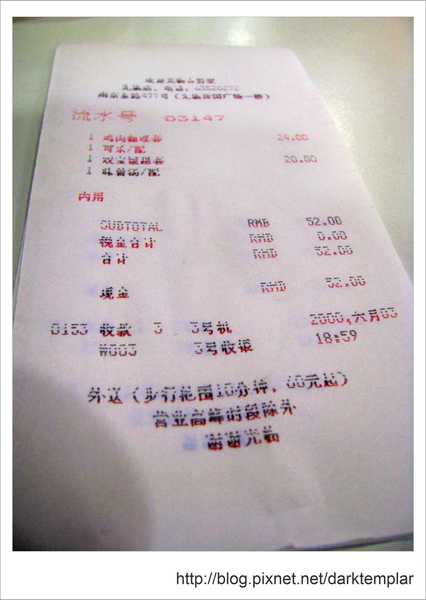 流水号 03147
1 鸡肉 24.00
1 可乐/配
1 双宝 20.00
1 味曾汤/配
内用
SUBTOTAL RMB 52.00
税金合计 RMB 0.00
合计 RMB 52.00
现金 RMB 52.00
0153 收款 3 3号机 2000,六月03
#003 3号收银 18:59
外送(步行范围10分钟,60元起)
营业高峰时段除外
谢谢光临
http://blog.pixnet.net/darktemplar